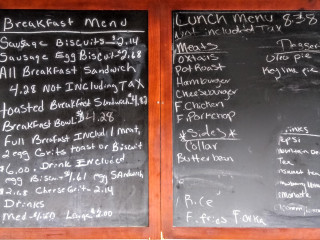 Breakfast Menu
Sausage Biscuits $2.14
Sausage Egg Biscuit $2.68
All Breakfast Sandwich
4.28 Not Including TAX
toasted Breakfast Sandwich 4.82
Breakfast Bowl $4.28
Full Breakfast Includ. 1 meat,
2 egg Grits toast or Biscuit
$6.00. Drink Encluded
egg Biscuit $1.61 egg Sandwich
$2.68 Cheese Grits 2.14
Drinks
Med Large $2.00
Lunch Menu 8.58
Not included Tax
Meats
Oxtails
Pot Roast
Hamburger
Cheeseburger
F. Chicken
F. Porkchop
*Sides*
Collar
Butterbean
Rice
F. fries F. OKRA
Pie
Key lime pie
pepsi
Tea